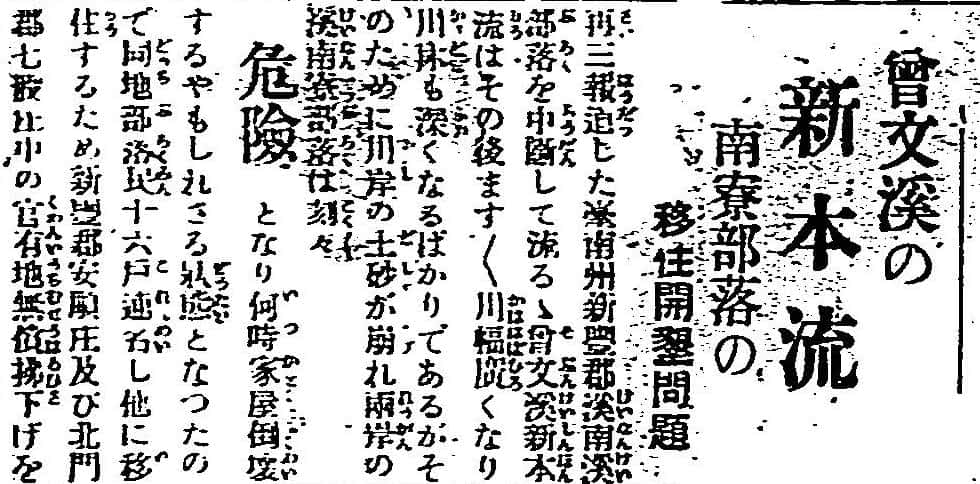 曾文溪の
新本流
南寮部落の
移住開墾問題
再三報道した臺南州新豐郡溪南溪
部落を中斷して流るゝ曾文溪新本
流はその後ます〱川幅廣くなり
川床も深くなるばかりであるがそ
のために川岸の土砂が崩れ兩岸の
溪南寮部落は刻々
危險
となり何時家屋倒壞
するやもしれざる狀態となつたの
で同地部落民十六戶連名し他に移
住するため新豐郡安順庄及び北門
郡七股庄中の官有地無償拂下げを